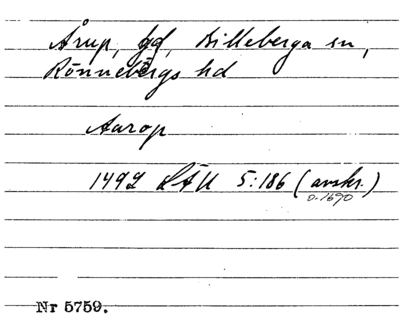 Årup, gd, Billeberga sn,
Rönnebergs hd
Aarop
1492 LÄU 5:186 (avskr.)
o. 1690
Nr 5759.